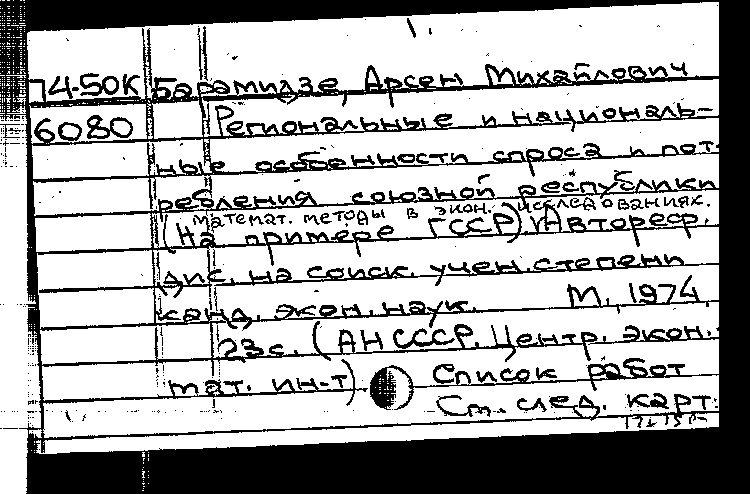 74-50К Барамидзе, Арсен Михайлович
6080 Региональные и националь-
ные особенности спроса и пот-
ребления союзной республики
(На примере ГССР) Автореф.
математ. методы в экон. исследованиях.
дис. на соиск. учен. степени
канд. экон. наук. М., 1974
23с. (АН СССР. Центр. экон.-
мат. ин-т) Список работ
См. след. карт.